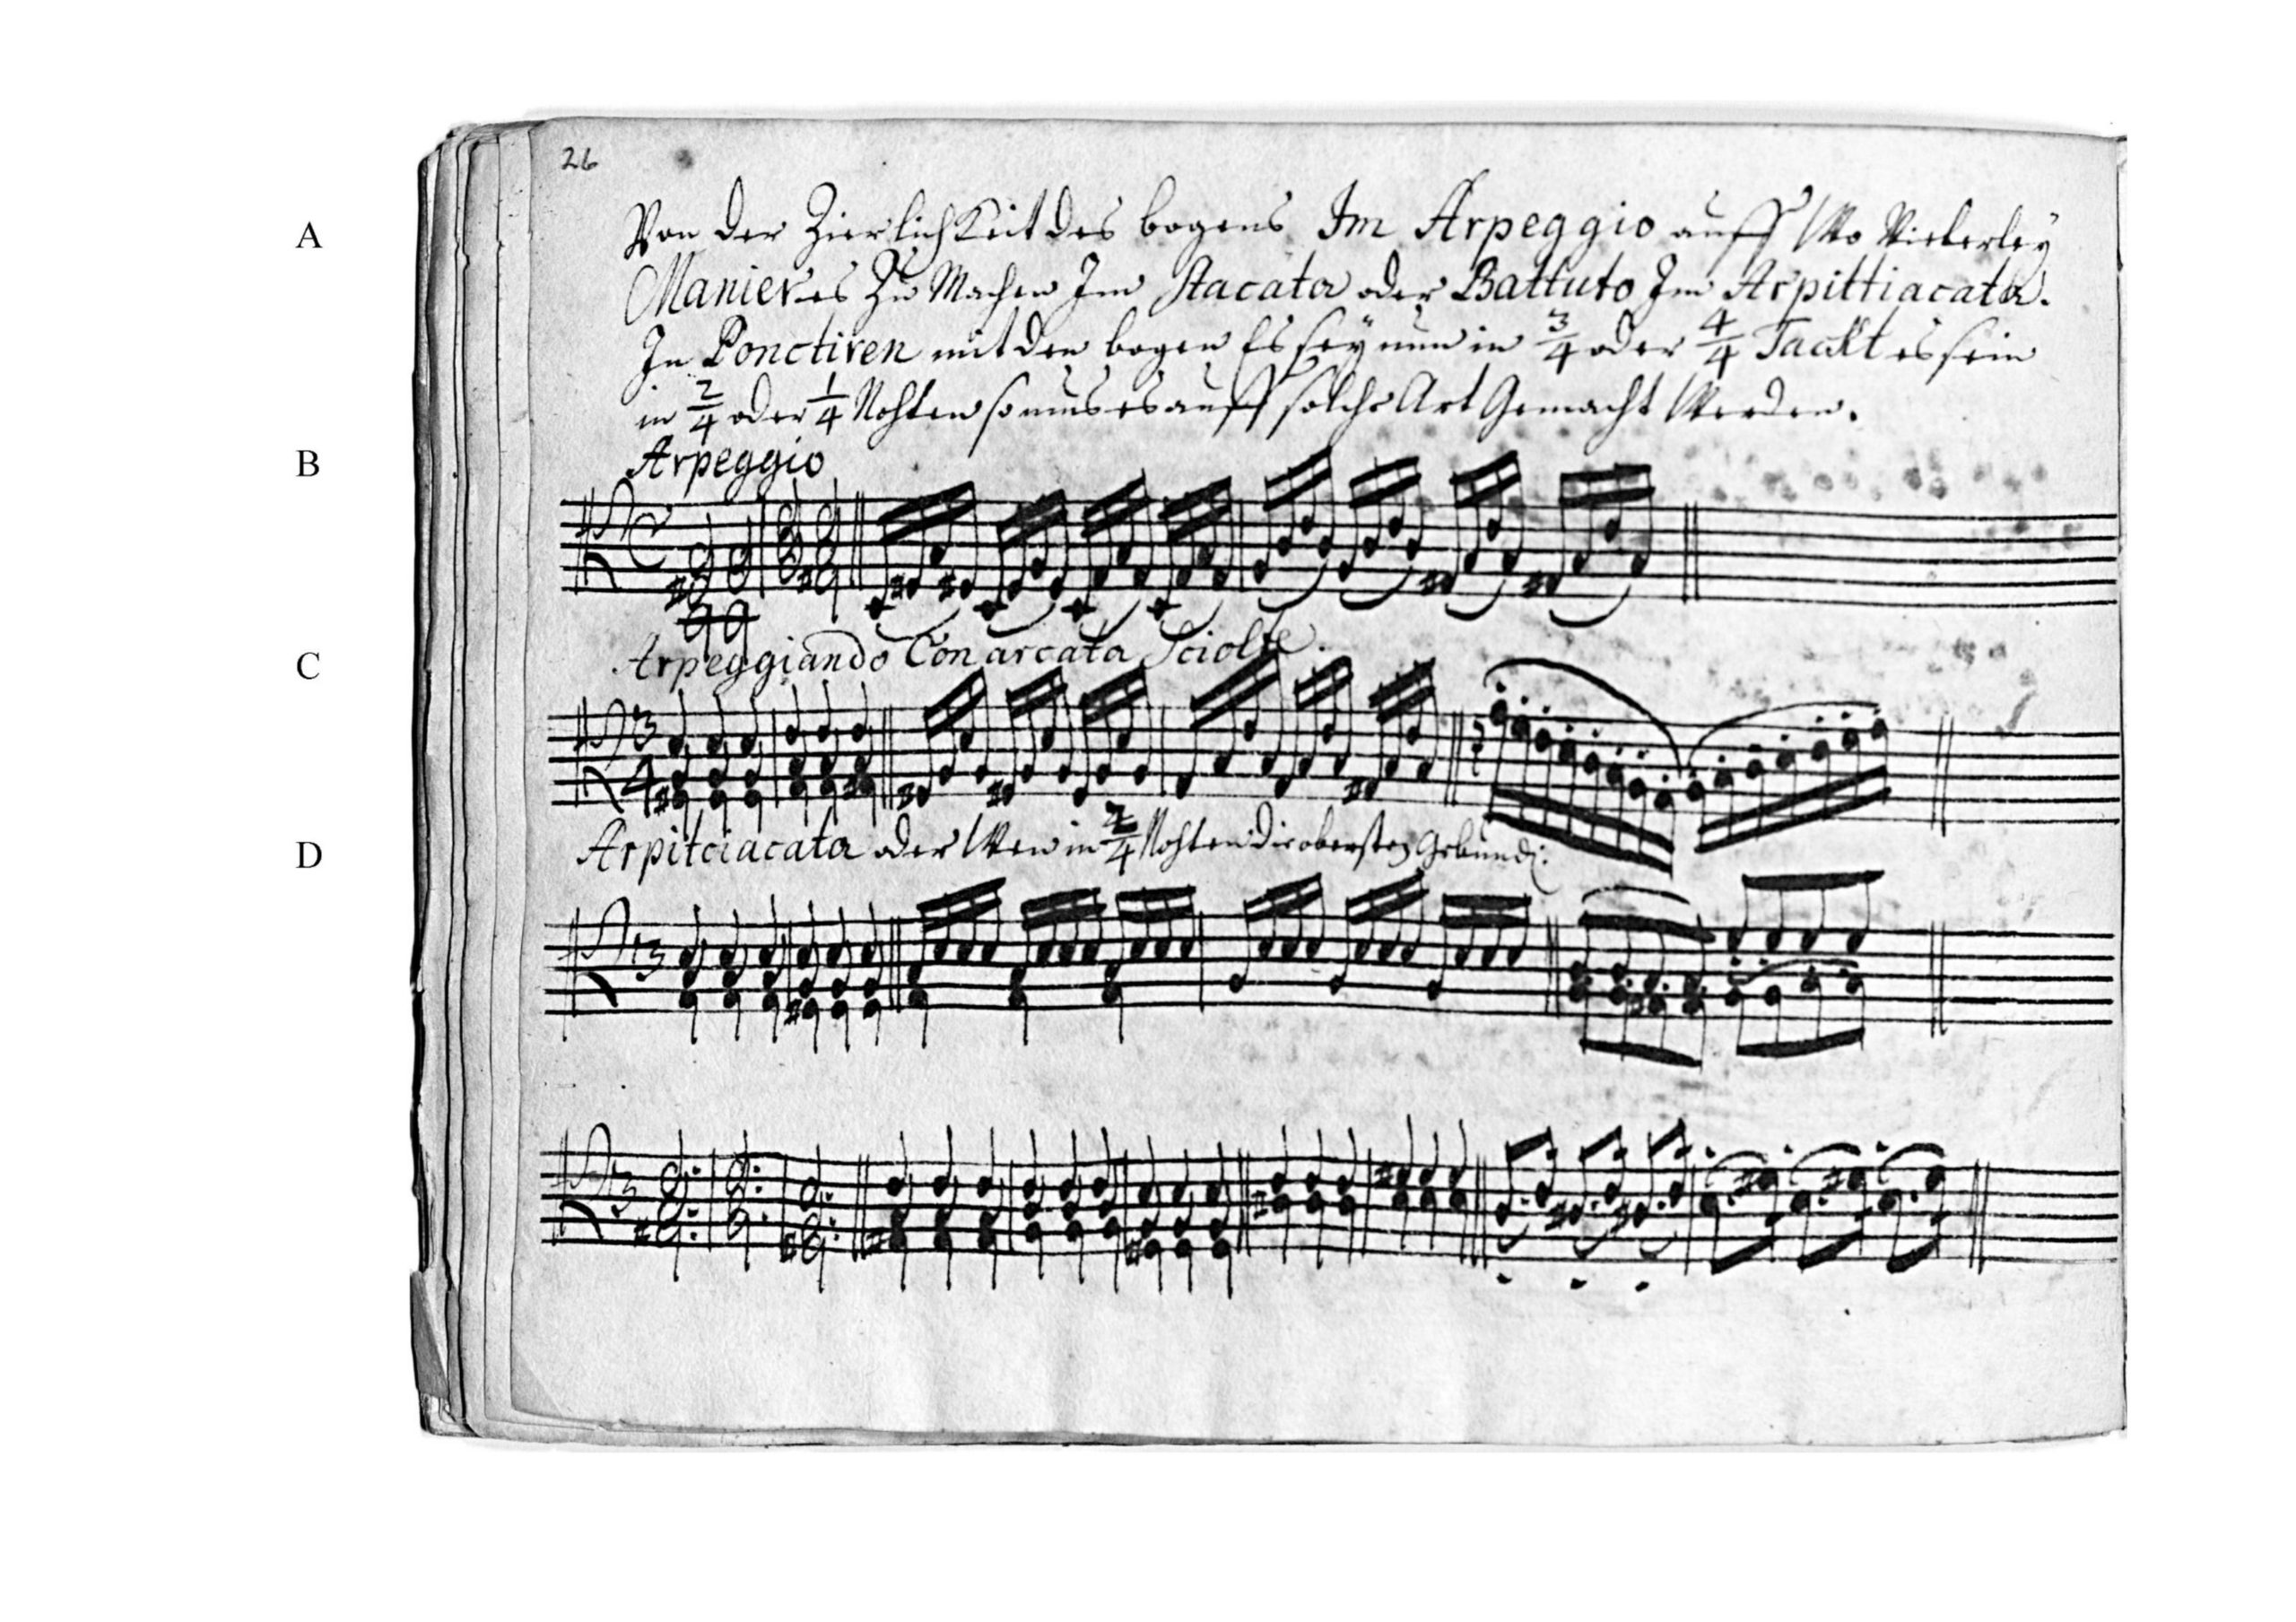 26
A
Von der Zierlichkeit des bogens Im Arpeggio auff Wo Vielerley
Manier es Zu Machen Im Stacata oder Battuto Im Arpittiacata.
In Ponctiren mit den bogen Es sey nun in 3/4 oder 4/4 Tackt es sein
in 2/4 oder 1/4 Nohten so mus es auff solche Art Gemacht Werden.
B
Arpeggio
C
Arpeggiando Con arcata Sciolte.
3
4
D
Arpitciacata oder Wen in 2/4 Nohten die obersten Gebund:
3
3